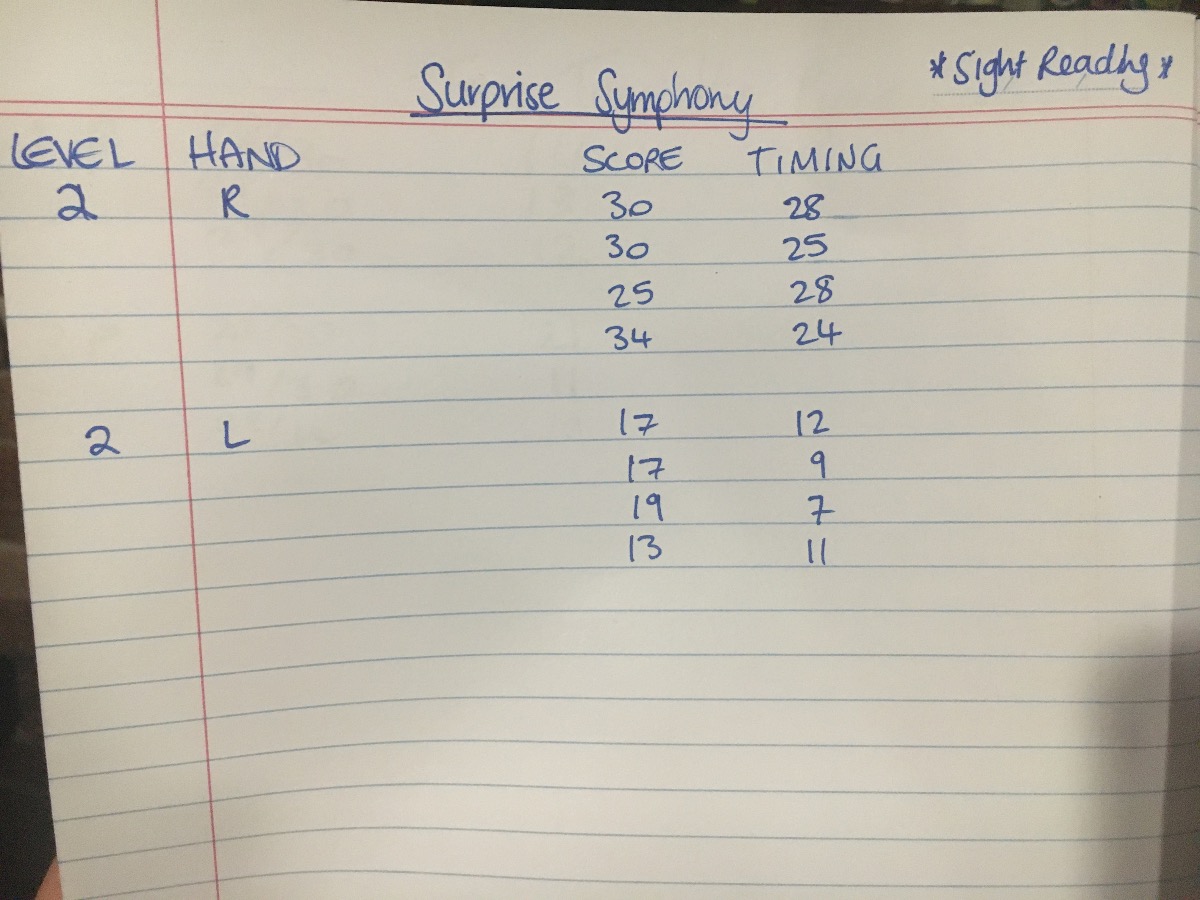 Surprise Symphony *Sight Reading*
LEVEL HAND SCORE TIMING
2 R 30 28
30 25
25 28
34 24
2 L 17 12
17 9
19 7
13 11